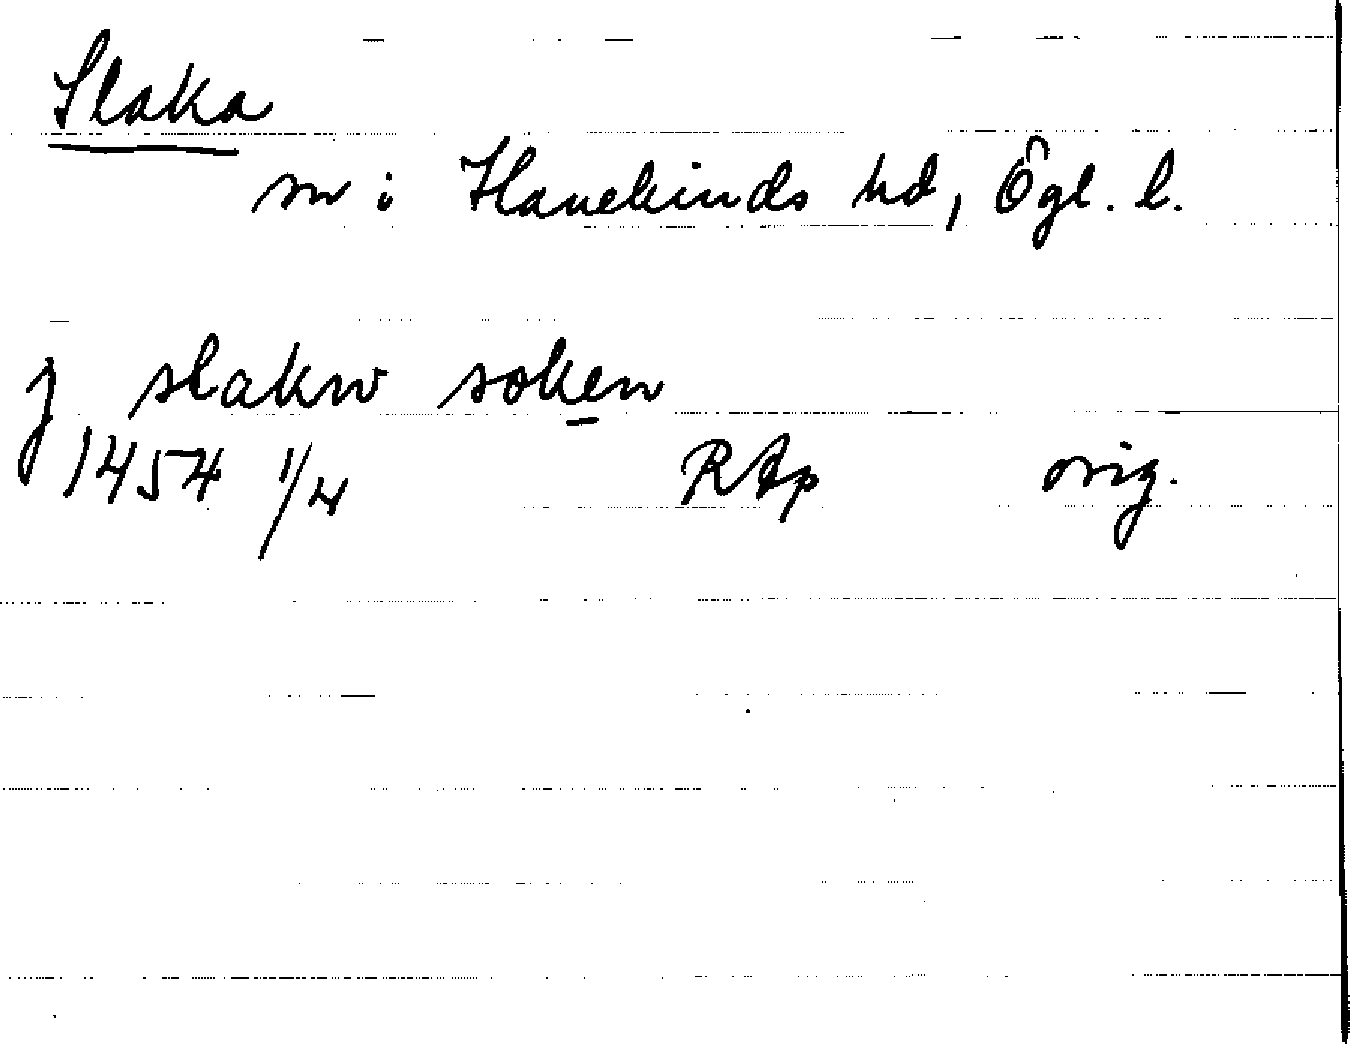 Slaka
sn i Hanekinds hd, Ögl. l.
j slakw soken
1454 1/4 RAp orig.